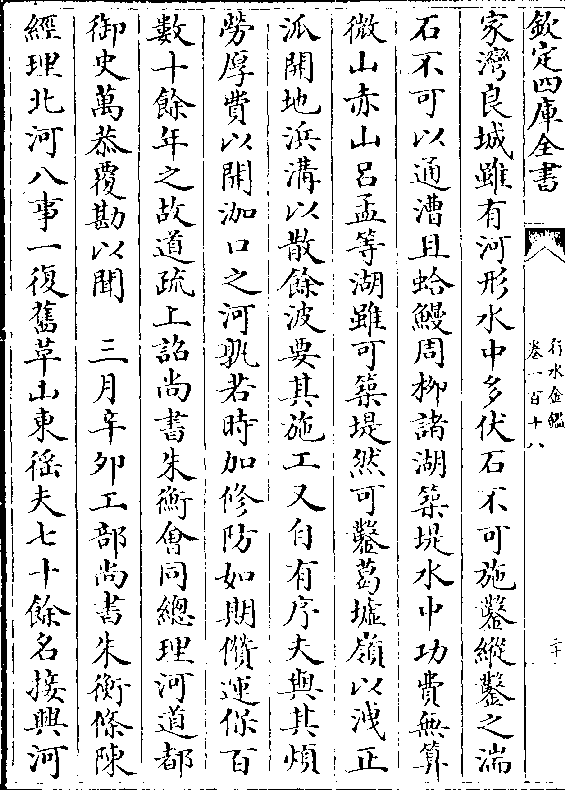 欽定四庫全書
行水金鑑
卷一百十八
二十
家灣良城雖有河形水中多伏石不可施鑿縱鑿之湍
石不可以通漕且蛤鰻周柳諸湖築堤水中功費無算
微山赤山呂孟等湖雖可築堤然可鑿葛墟嶺以洩正
派開地浜溝以散餘波要其施工又自有序夫與其煩
勞厚費以開泇口之河孰若時加修防如期儧運保百
數十餘年之故道疏上詔尚書朱衡㑹同總理河道都
御史萬恭覆勘以聞　三月辛卯工部尚書朱衡條陳
經理北河八事一復舊草山東徭夫七十餘名接興河